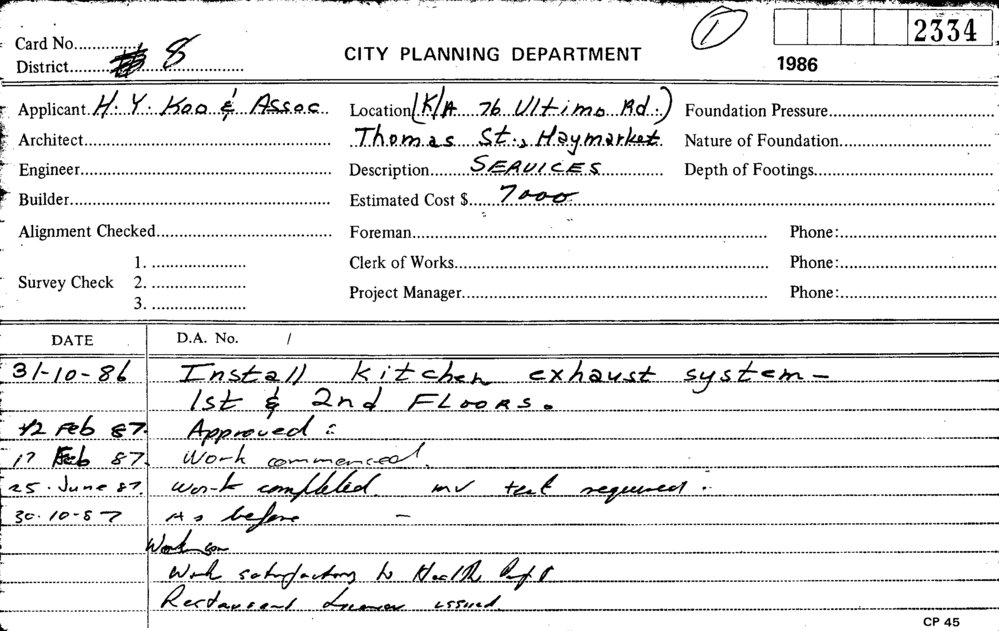 Card No.............
District............ 8
CITY PLANNING DEPARTMENT
1
2334
1986
Applicant H. Y. Koo & Assoc
Architect
Engineer
Builder
Alignment Checked
Survey Check
1.
2.
3.
Location (K/A 76 Ultimo Rd.)
Thomas St., Haymarket
Description SERVICES
Estimated Cost $ 7000
Foreman
Clerk of Works
Project Manager
Foundation Pressure
Nature of Foundation
Depth of Footings
Phone:
Phone:
Phone:
DATE D.A. No. /
31-10-86 Install kitchen exhaust system -
1st & 2nd FLOORS.
12 Feb 87. Approved :
17 Feb 87. Work commenced.
25 . June 87. work completed. mv test required .
30.10-87 As before -
Work com
Work satisfactory to Health Dept
Restaurant license issued
CP 45